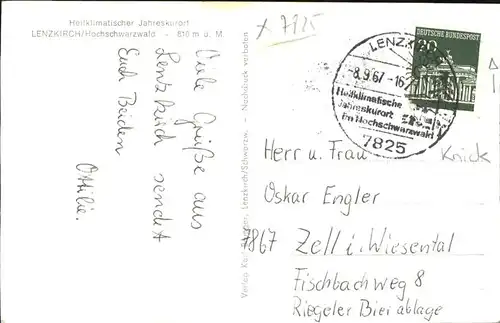 Heilklimatischer Jahreskurort
LENZKIRCH/Hochschwarzwald - 810 m ü. M.
x 7825
Viele Grüße aus
Lenzkirch sendet
Euch Beiden
Ottilie.
Lenzkirch/Schwarzw. - Nachdruck verboten
Verlag
DEUTSCHE BUNDESPOST
20
LENZK
8.9.67-16
Heilklimatische
Jahreskurort
im Hochschwarzwald
7825
Knick
Herr u. Frau
Oskar Engler
7867 Zell i. Wiesental
Fischbachweg 8
Riegeler Bierablage